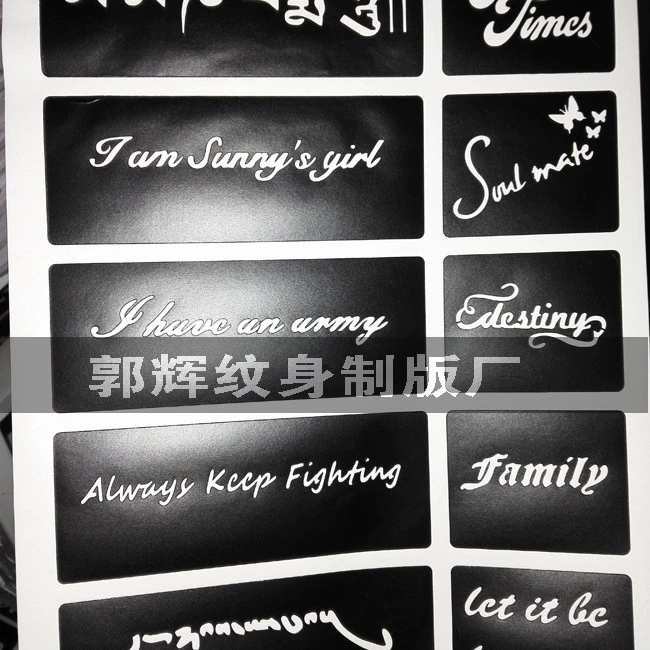 Times
I am Sunny's girl
Soul mate
I have an army
destiny
郭辉纹身制版厂
Always Keep Fighting
Family
let it be